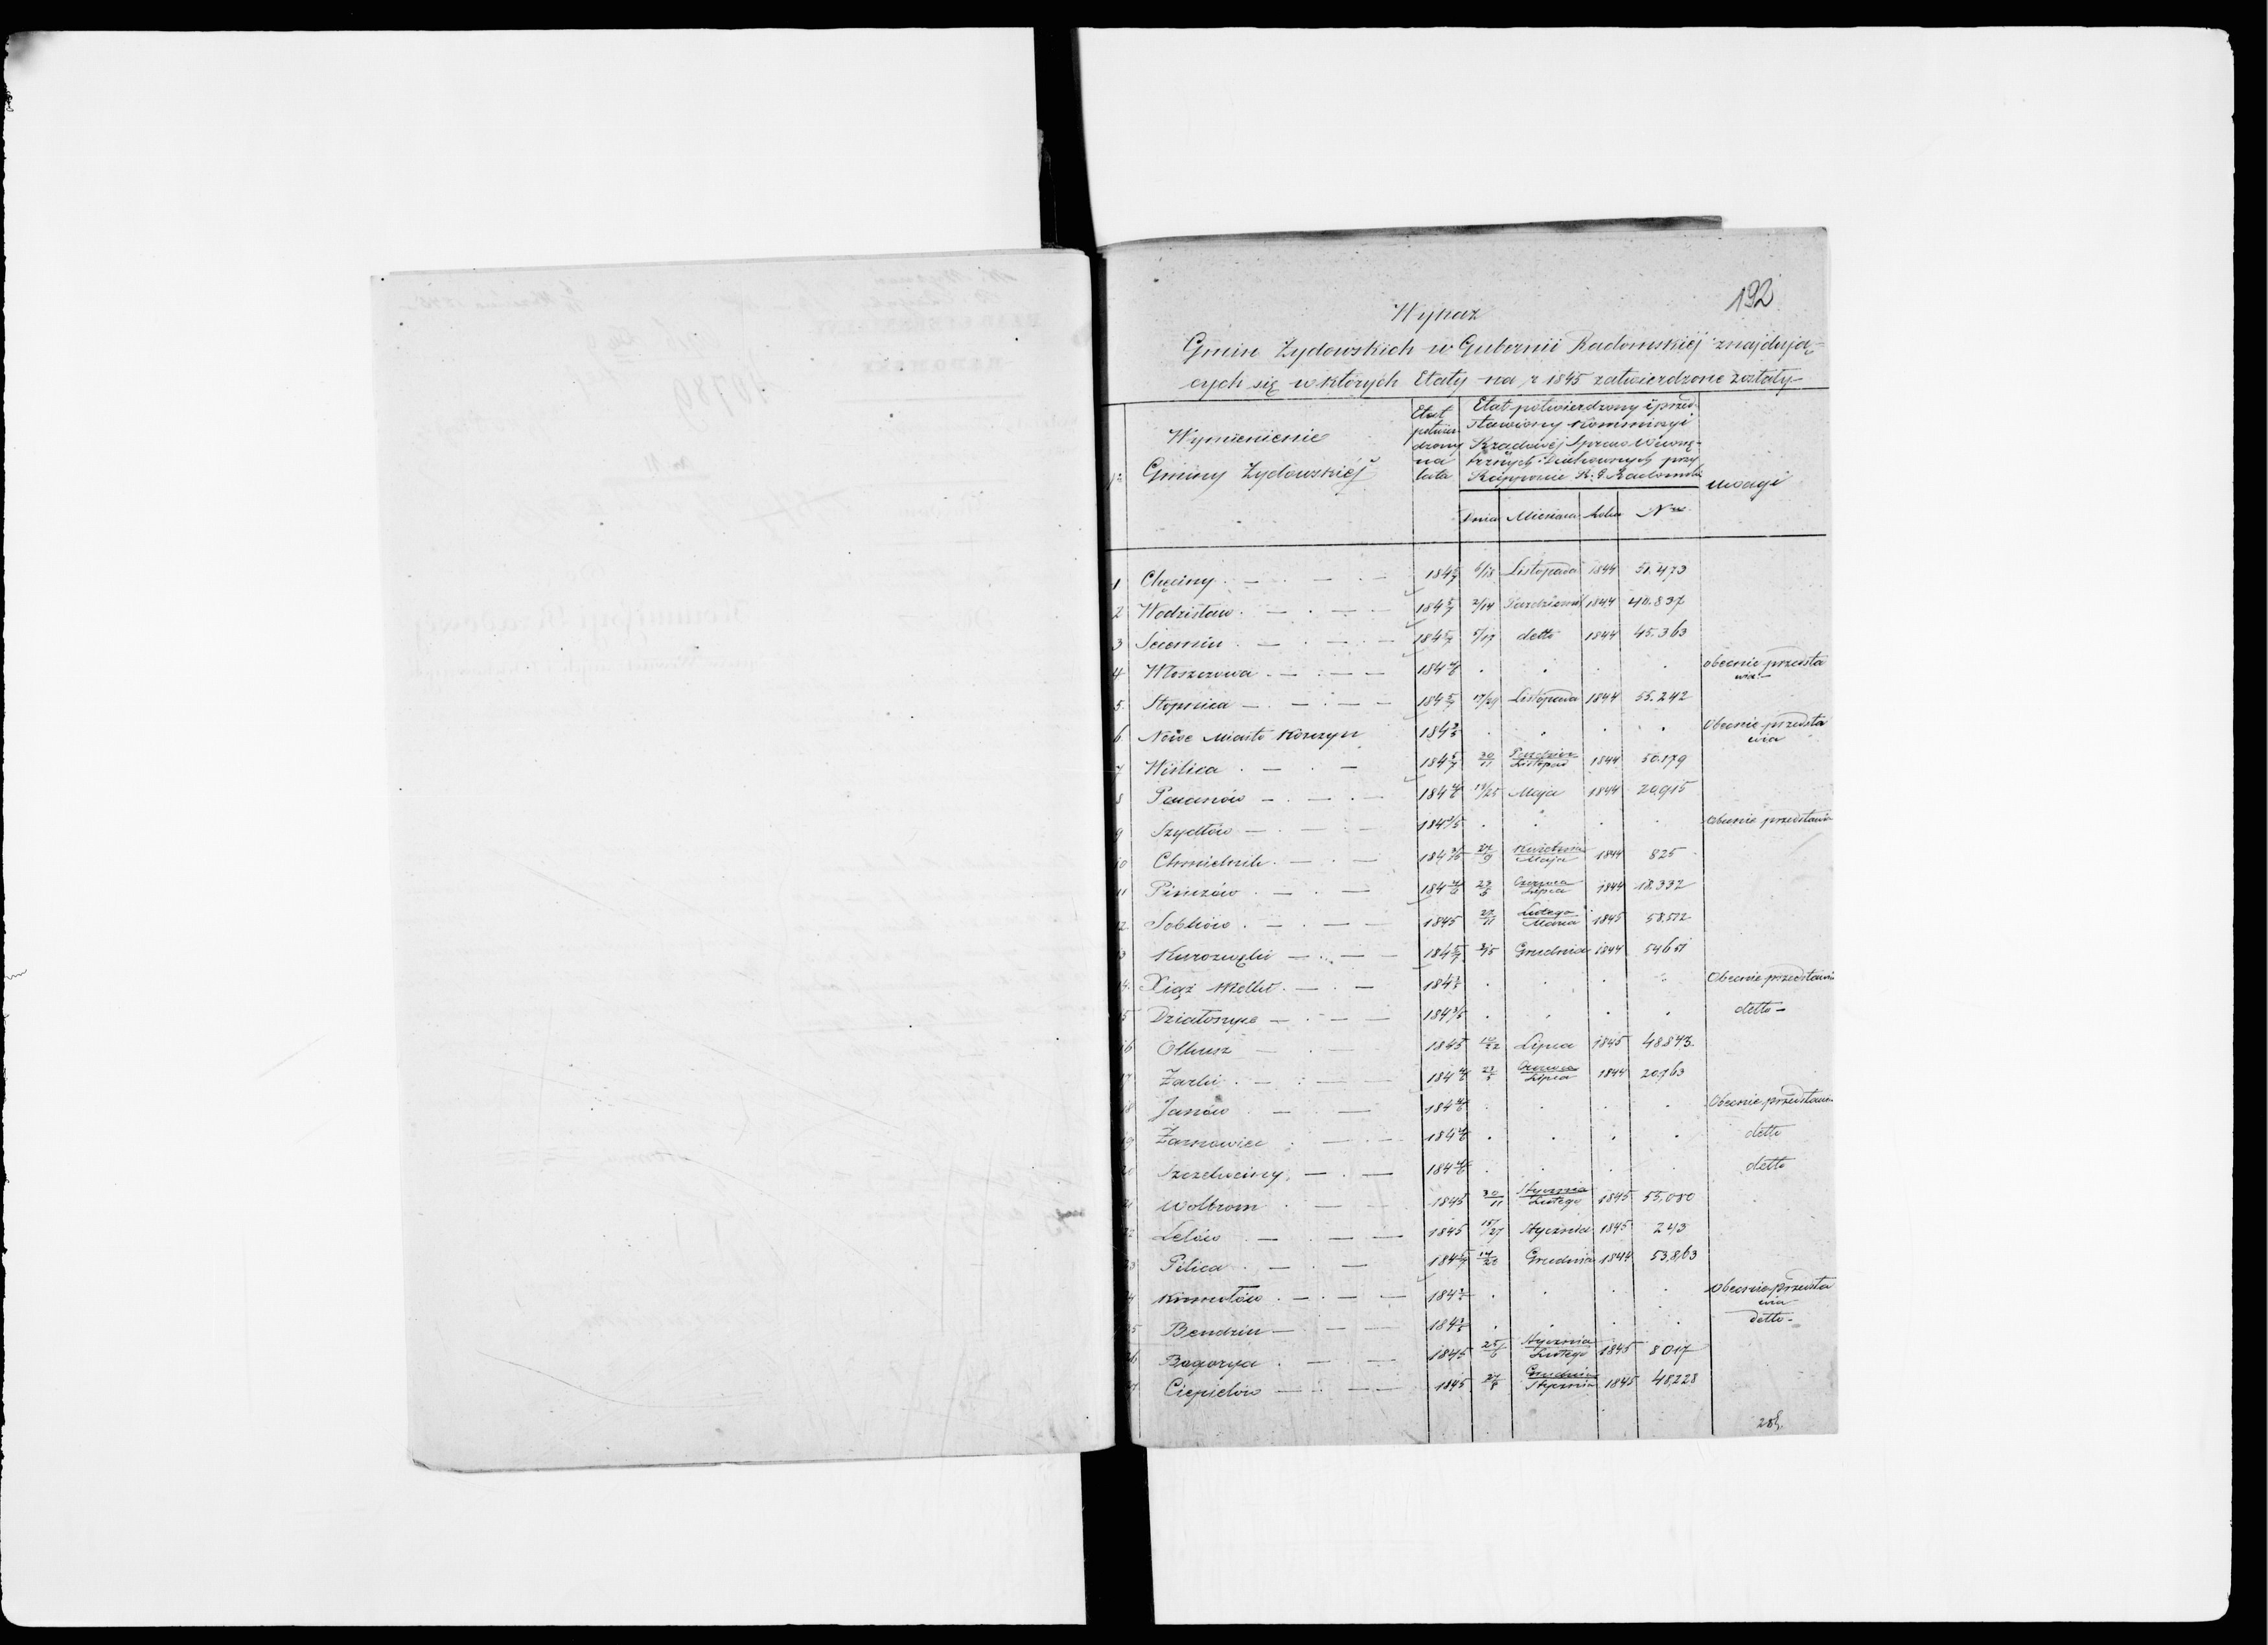 192
Wykaz
Gmin Żydowskich w Gubernii Radomskiéj znajdują-
cych się w których Etaty na r 1845 zatwierdzone zostały
Wymienienie Gminy Żydowskiéj
Etat potwier- dzony na lata
Etat potwierdzony i przed- stawiony Kommissyi Rządowéj Spraw Wewnę- trznych i Duchownych przy Rapporcie R. G. Radomski
Uwagi
Dnia Miesiąca Roku Nro
1 Chęciny 184 5/7 6/18 Listopada 1844 51.473
2 Wodzisław 184 5/7 2/14 Paździer 1844 837
3 184 5/7 5/17 detto 1844 45.363
4 Włoszczowa 184 4/6 obecnie przedsta
wia
5. Stopnica 184 5/7 17/29 Listopada 1844 55.242
6 Nowe Miasto Korczyn 184 3/5 Obecnie przedsta
wia
7 Wiślica 184 5/7 30/11 Paździer/Listopad 1844 50.179
8 Pacanów 184 4/6 13/25 Maja 1844 20,915
9 Szydłów 184 3/5 Obecnie przedstawia
10 Chmielnik 184 3/5 27/9 Kwietnia/Maja 1844 825
11 Pińczów 184 4/6 23/5 Czerwca/Lipca 1844 18.332
12 Sobków 1845 27/11 Lutego/Marca 1845 58.512
13 Kurozwęki 184 5/7 3/15 Grudnia 1844 54651
14. Xiąż 184 Obecnie przedstawia
15 Działoszyce 184 3/5 detto
16 Olkusz 1845 10/22 Lipca 1845 48843.
17 Żarki 184 4/6 23/5 Czerwca/Lipca 1844 20,963
18 Janów 184 4/6 Obecnie przedstawia
19 Żarnowiec 184 4/6 detto
20 Szczekociny 184 4/6 detto
21 Wolbrom 1845 30/11 Stycznia/Lutego 1845 55,080
22 Lelów 1845 15/27 Stycznia 1845 243
23 Pilica 184 5/7 Grudnia 1844 53.863
24 Kromołów 184 Obecnie przedsta
wia
25 Bendzin 184 3/5 detto
26 Bogorya 1845 25/6 Stycznia/Lutego 1845 8017
27 Ciepielów 1845 27/8 Grudnia/Stycznia 1845 48,228